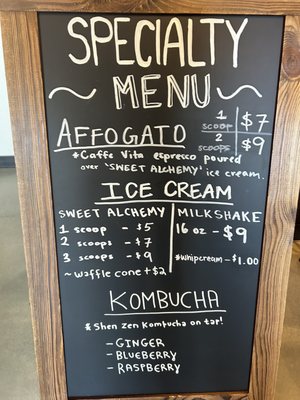 SPECIALTY
~ MENU ~
AFFOGATO
1 scoop $7
2 scoops $9
*Caffe Vita espresso poured
over 'SWEET ALCHEMY' ice cream.
ICE CREAM
SWEET ALCHEMY
1 scoop - $5
2 scoops - $7
3 scoops - $9
~ waffle cone +$2
MILKSHAKE
16 oz - $9
*whipcream - $1.00
KOMBUCHA
* Shen Zen Kombucha on tap!
- GINGER
- BLUEBERRY
- RASPBERRY